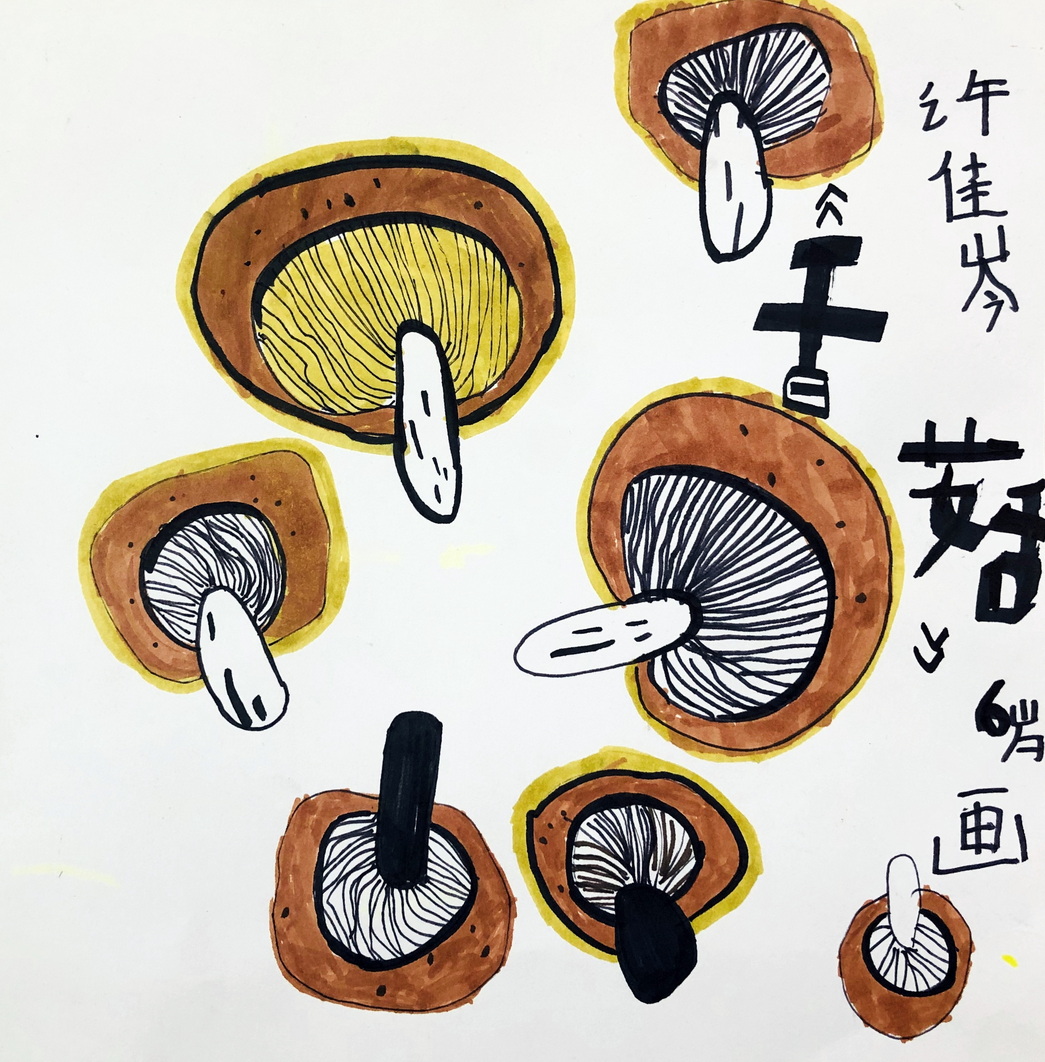 许佳岑
《香菇》
6岁画